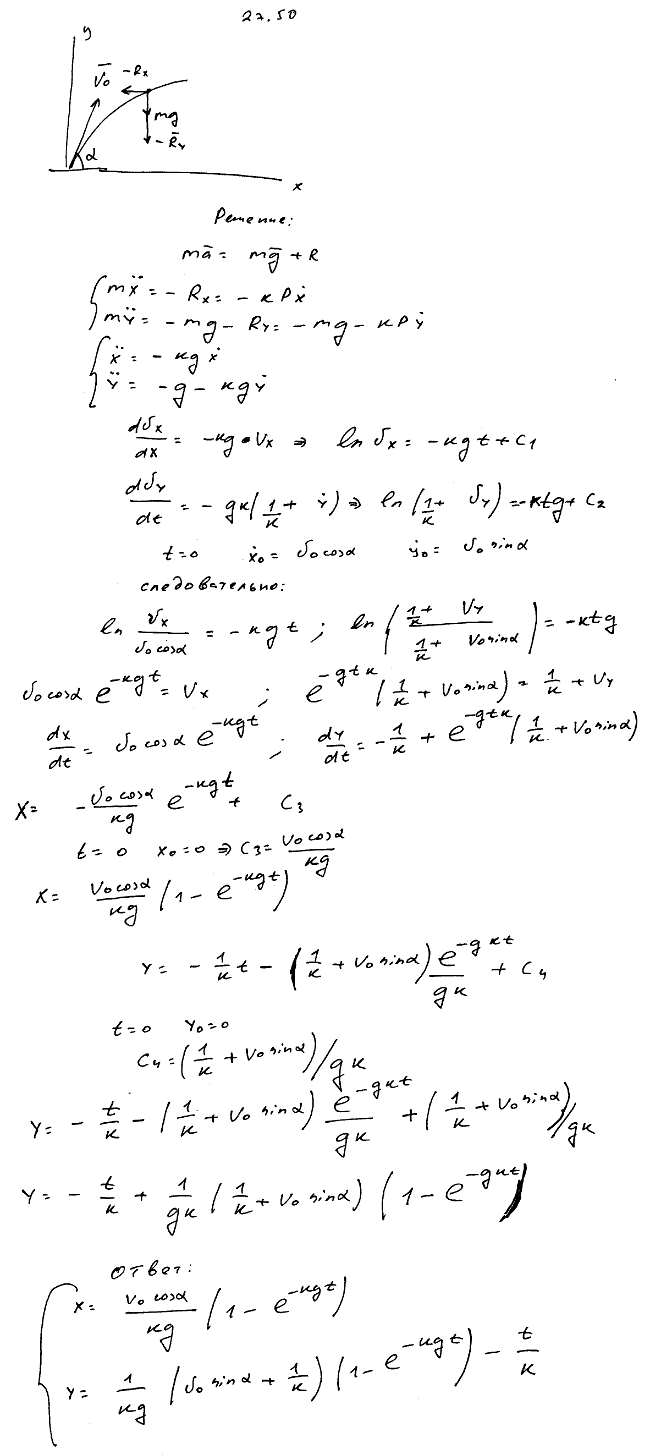 27.50
y
V̄₀ -Rx
mg
α -R̄y
x
Решение:
mā = mḡ + R
mẍ = - Rx = - кPẋ
mÿ = - mg - Ry = - mg - кPẏ
ẍ = - кgẋ
ÿ = -g - кgẏ
dVx/dx = -кg•Vx ⇒ ln Vx = -кgt + C1
dVy/dt = - gк(1/к + ẏ) ⇒ ln(1/к + Vy) = -кtg + C2
t=0 ẋ₀ = V₀cosα ẏ₀ = V₀sinα
следовательно:
ln Vx/(V₀cosα) = -кgt ; ln((1/к + Vy)/(1/к + V₀sinα)) = -кtg
V₀cosα e^(-кgt) = Vx ; e^(-gtк) (1/к + V₀sinα) = 1/к + Vy
dx/dt = V₀cosα e^(-кgt) ; dy/dt = -1/к + e^(-gtк) (1/к + V₀sinα)
x = - V₀cosα/кg e^(-кgt) + C3
t=0 x₀=0 ⇒ C3 = V₀cosα/кg
x = V₀cosα/кg (1 - e^(-кgt))
y = - 1/к t - (1/к + V₀sinα) e^(-gкt)/gк + C4
t=0 y₀=0
C4 = (1/к + V₀sinα)/gк
y = - t/к - (1/к + V₀sinα) e^(-gкt)/gк + (1/к + V₀sinα)/gк
y = - t/к + 1/gк (1/к + V₀sinα) (1 - e^(-gкt))
ответ:
x = V₀cosα/кg (1 - e^(-кgt))
y = 1/кg (V₀sinα + 1/к) (1 - e^(-кgt)) - t/к